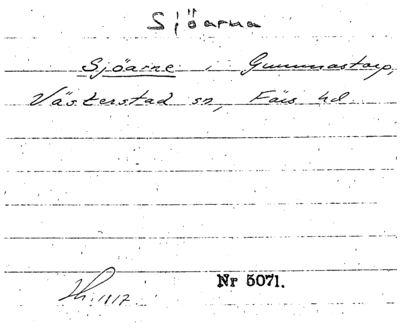 Sjöarna
Sjöarne, Gummastorp,
Västerstad sn, Färs hd
Nr 5071.